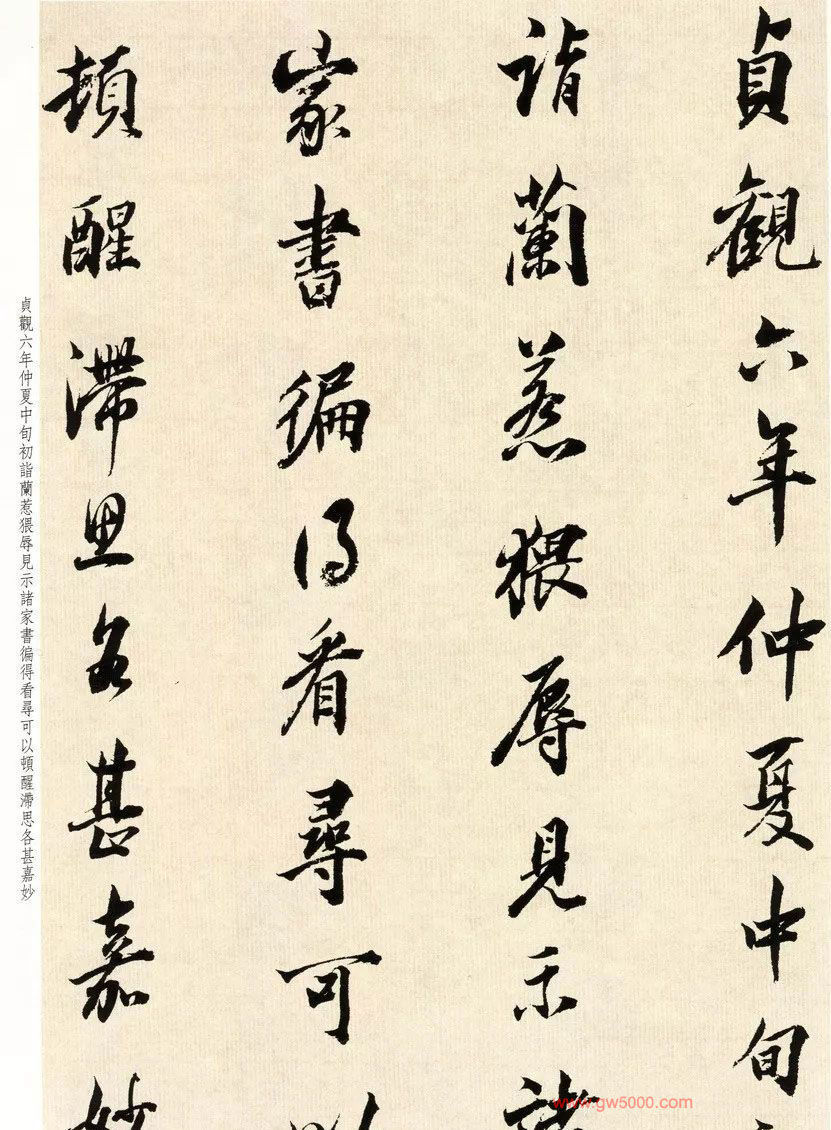 貞觀六年仲夏中旬初
詣蘭惹猥辱見示諸
家書徧得看尋可以
頓醒滯思各甚嘉妙
貞觀六年仲夏中旬初詣蘭惹猥辱見示諸家書徧得看尋可以頓醒滯思各甚嘉妙
www.gw5000.com